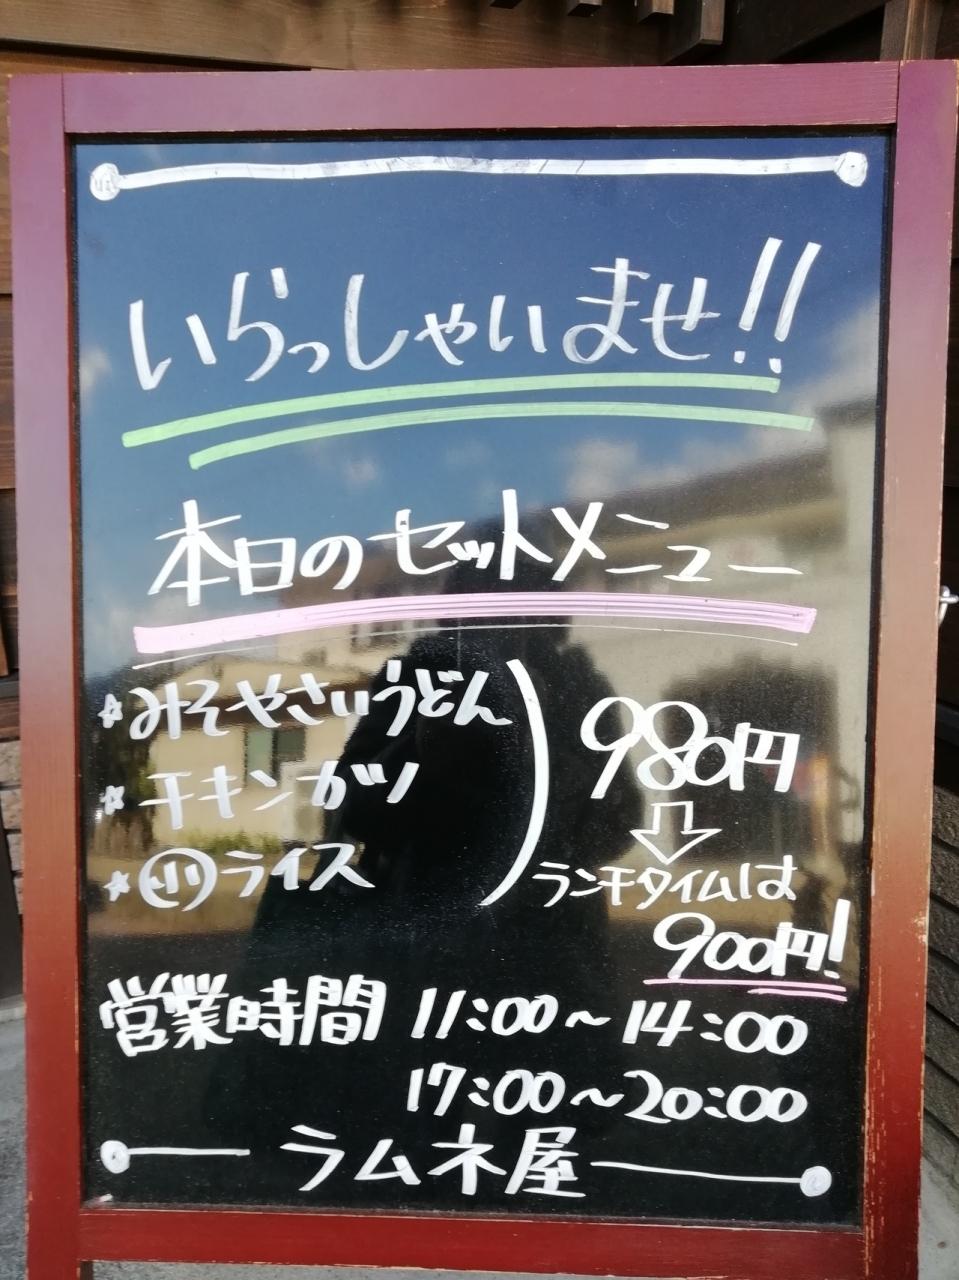 いらっしゃいませ!!
本日のセットメニュー
☆みそやさいうどん
☆チキンカツ
☆㋛ライス
980円
⇩
ランチタイムは
900円!
営業時間 11:00～14:00
17:00～20:00
ラムネ屋